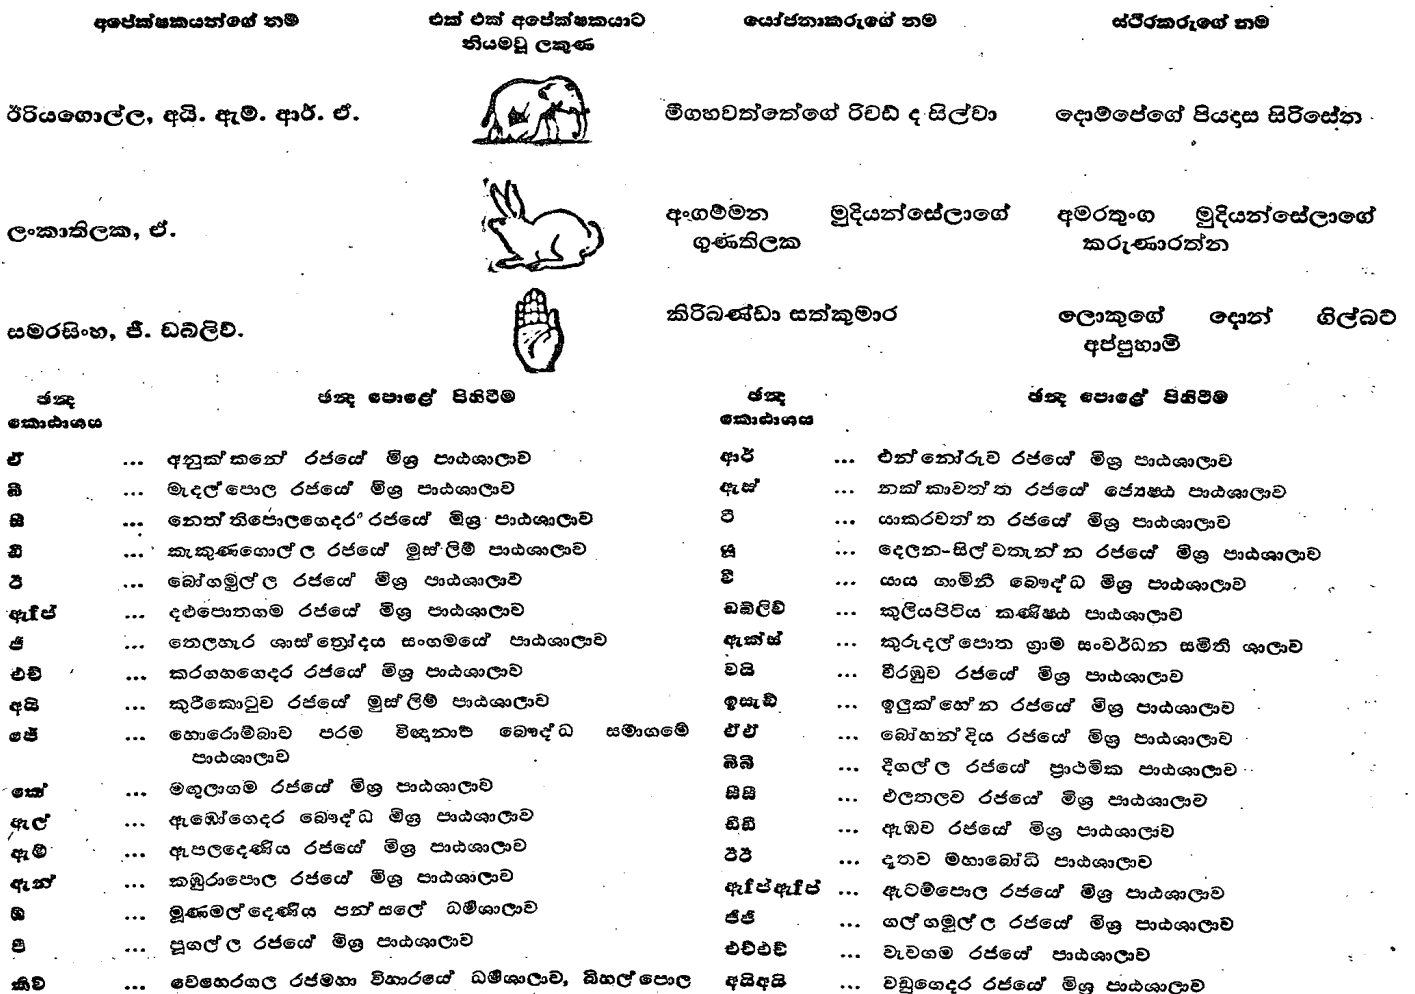 අපේක්ෂකයන්ගේ නම
එක් එක් අපේක්ෂකයාට
නියමවූ ලකුණ
යෝජනාකරුගේ නම
ස්ථිරකරුගේ නම
ඊරියගොල්ල, අයි. ඇම්. ආර්. ඒ.
මීගහවත්තේගේ රිචඩ් ද සිල්වා
දොම්පේගේ පියදාස සිරිසේන
ලංකාතිලක, ඒ.
අංගම්මන මුදියන්සේලාගේ
ගුණතිලක
අමරතුංග මුදියන්සේලාගේ
කරුණාරත්න
සමරසිංහ, ජී. ඩබ්ලිව්.
කිරිබණ්ඩා සත්කුමාර
ලොකුගේ දොන් ගිල්බට්
අප්පුහාමි
ඡන්ද
කොඨාශය
ඡන්ද පොළේ පිහිටීම
ඒ ... අනුක්කනේ රජයේ මිශ්‍ර පාඨශාලාව
බී ... මැදල්පොල රජයේ මිශ්‍ර පාඨශාලාව
සී ... නෙත්තිපොලගෙදර රජයේ මිශ්‍ර පාඨශාලාව
ඩී ... කැකුණගොල්ල රජයේ මුස්ලිම් පාඨශාලාව
ඊ ... බෝගමුල්ල රජයේ මිශ්‍ර පාඨශාලාව
ඇf ප් ... දළුපොතගම රජයේ මිශ්‍ර පාඨශාලාව
ජී ... තෙලහැර ශාස්ත්‍රෝදය සංගමයේ පාඨශාලාව
එච් ... කරගහගෙදර රජයේ මිශ්‍ර පාඨශාලාව
අයි ... කුරීකොටුව රජයේ මුස්ලිම් පාඨශාලාව
ජේ ... හොරොම්බාව පරම විඥානාර්ථ බෞද්ධ සමාගමේ
පාඨශාලාව
කේ ... මඟුලාගම රජයේ මිශ්‍ර පාඨශාලාව
ඇල් ... ඇඹෝගෙදර බෞද්ධ මිශ්‍ර පාඨශාලාව
ඇම් ... ඇපලදෙණිය රජයේ මිශ්‍ර පාඨශාලාව
ඇන් ... කඹුරාපොල රජයේ මිශ්‍ර පාඨශාලාව
ඕ ... මූණමල්දෙණිය පන්සලේ ධර්මශාලාව
පී ... පූගල්ල රජයේ මිශ්‍ර පාඨශාලාව
කිව් ... වෙහෙරගල රජමහා විහාරයේ ධර්මශාලාව, බිහල්පොල
ඡන්ද
කොඨාශය
ඡන්ද පොළේ පිහිටීම
ආර් ... එන්නෝරුව රජයේ මිශ්‍ර පාඨශාලාව
ඇස් ... නක්කාවත්ත රජයේ ජ්‍යෙෂ්ඨ පාඨශාලාව
ටී ... යාකරවත්ත රජයේ මිශ්‍ර පාඨශාලාව
යූ ... දෙලන-සිල්වතැන්න රජයේ මිශ්‍ර පාඨශාලාව
වී ... යාය ගාමිනී බෞද්ධ මිශ්‍ර පාඨශාලාව
ඩබ්ලිව් ... කුලියපිටිය කණිෂ්ඨ පාඨශාලාව
ඇක්ස් ... කුරුදල්පොත ග්‍රාම සංවර්ධන සමිති ශාලාව
වයි ... වීරඹුව රජයේ මිශ්‍ර පාඨශාලාව
ඉසැඩ් ... ඉලුක්හේන රජයේ මිශ්‍ර පාඨශාලාව
ඒඒ ... බෝහන්දිය රජයේ මිශ්‍ර පාඨශාලාව
බීබී ... දීගල්ල රජයේ ප්‍රාථමික පාඨශාලාව
සීසී ... එලතලව රජයේ මිශ්‍ර පාඨශාලාව
ඩීඩී ... ඇඹව රජයේ මිශ්‍ර පාඨශාලාව
ඊඊ ... දූතව මහාබෝධි පාඨශාලාව
ඇfප්ඇfප් ... ඇටම්පොල රජයේ මිශ්‍ර පාඨශාලාව
ජීජී ... ගල්ගමුල්ල රජයේ මිශ්‍ර පාඨශාලාව
එච්එච් ... වැවගම රජයේ පාඨශාලාව
අයිඅයි ... වඩුගෙදර රජයේ මිශ්‍ර පාඨශාලාව